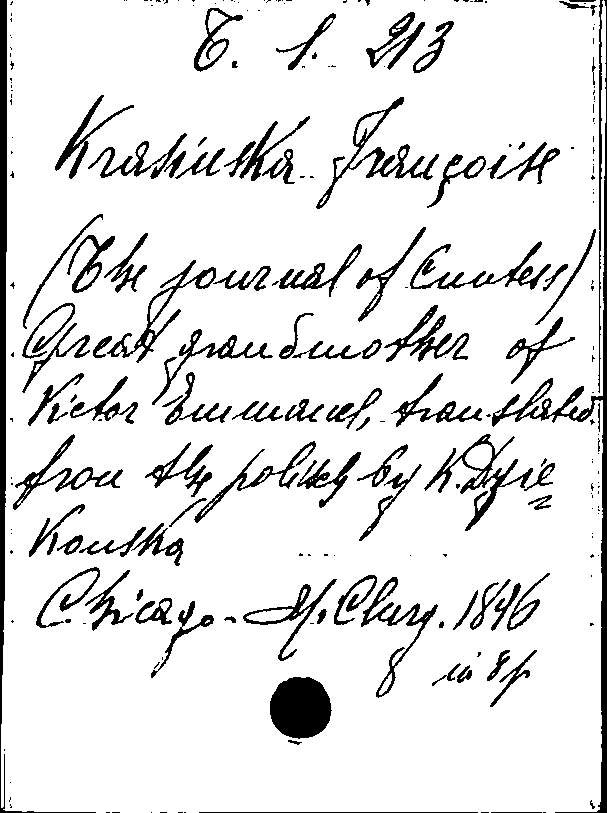 T. S. 213
Krasinska Françoise
(The journal of Countess)
Great grandmother of
Victor Emmanuel, translated
from the polish by K. Dzie=
Konska
Chicago - M. Clurg. 1896
8 in 8p